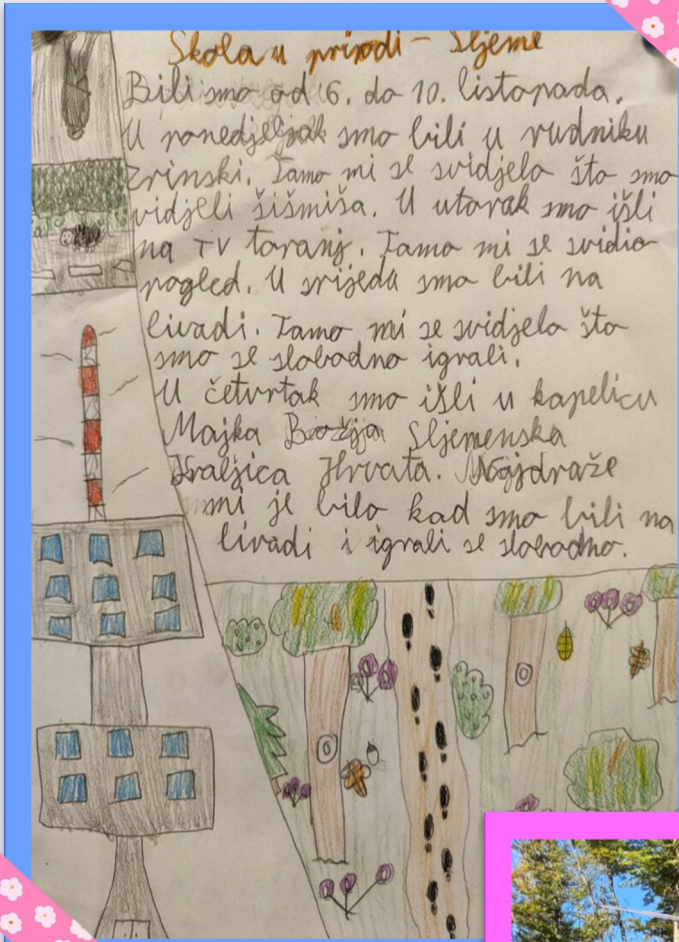 Škola u prirodi - Sljeme
Bili smo od 6. do 10. listopada.
U ponedjeljak smo bili u rudniku
Zrinski. Tamo mi se svidjelo što smo
vidjeli šišmiša. U utorak smo išli
na TV toranj. Tamo mi se svidio
pogled. U srijedu smo bili na
livadi. Tamo mi se svidjelo što
smo se slobodno igrali.
U četvrtak smo išli u kapelicu
Majka Božja Sljemenska
Kraljica Hrvata. Najdraže
mi je bilo kad smo bili na
livadi i igrali se slobodno.